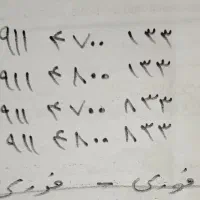 ۹۱۱ ۴۷۰۰ ۱۳۳
۹۱۱ ۴۸۰۰ ۱۳۳
۹۱۱ ۴۷۰۰ ۸۳۳
۹۱۱ ۴۸۰۰ ۸۳۳
فوری - فوری